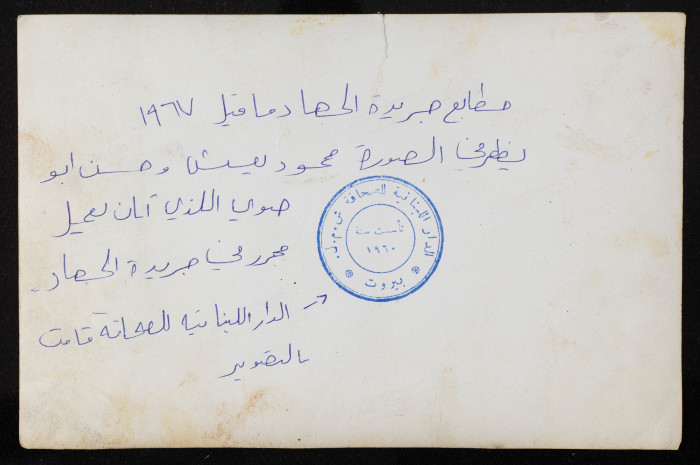 مطابع جريدة الجهاد ما قبل ١٩٦٧
يظهر في الصورة محمود يعيش وحسن ابو
ضوي اللذي كان يعمل
محرر في جريدة الجهاد.
الدار اللبنانية للصحافة قامت
بالتصوير
الدار اللبنانية للصحافة ش.م.ل.
تأسست سنة
١٩٦٠
بيروت